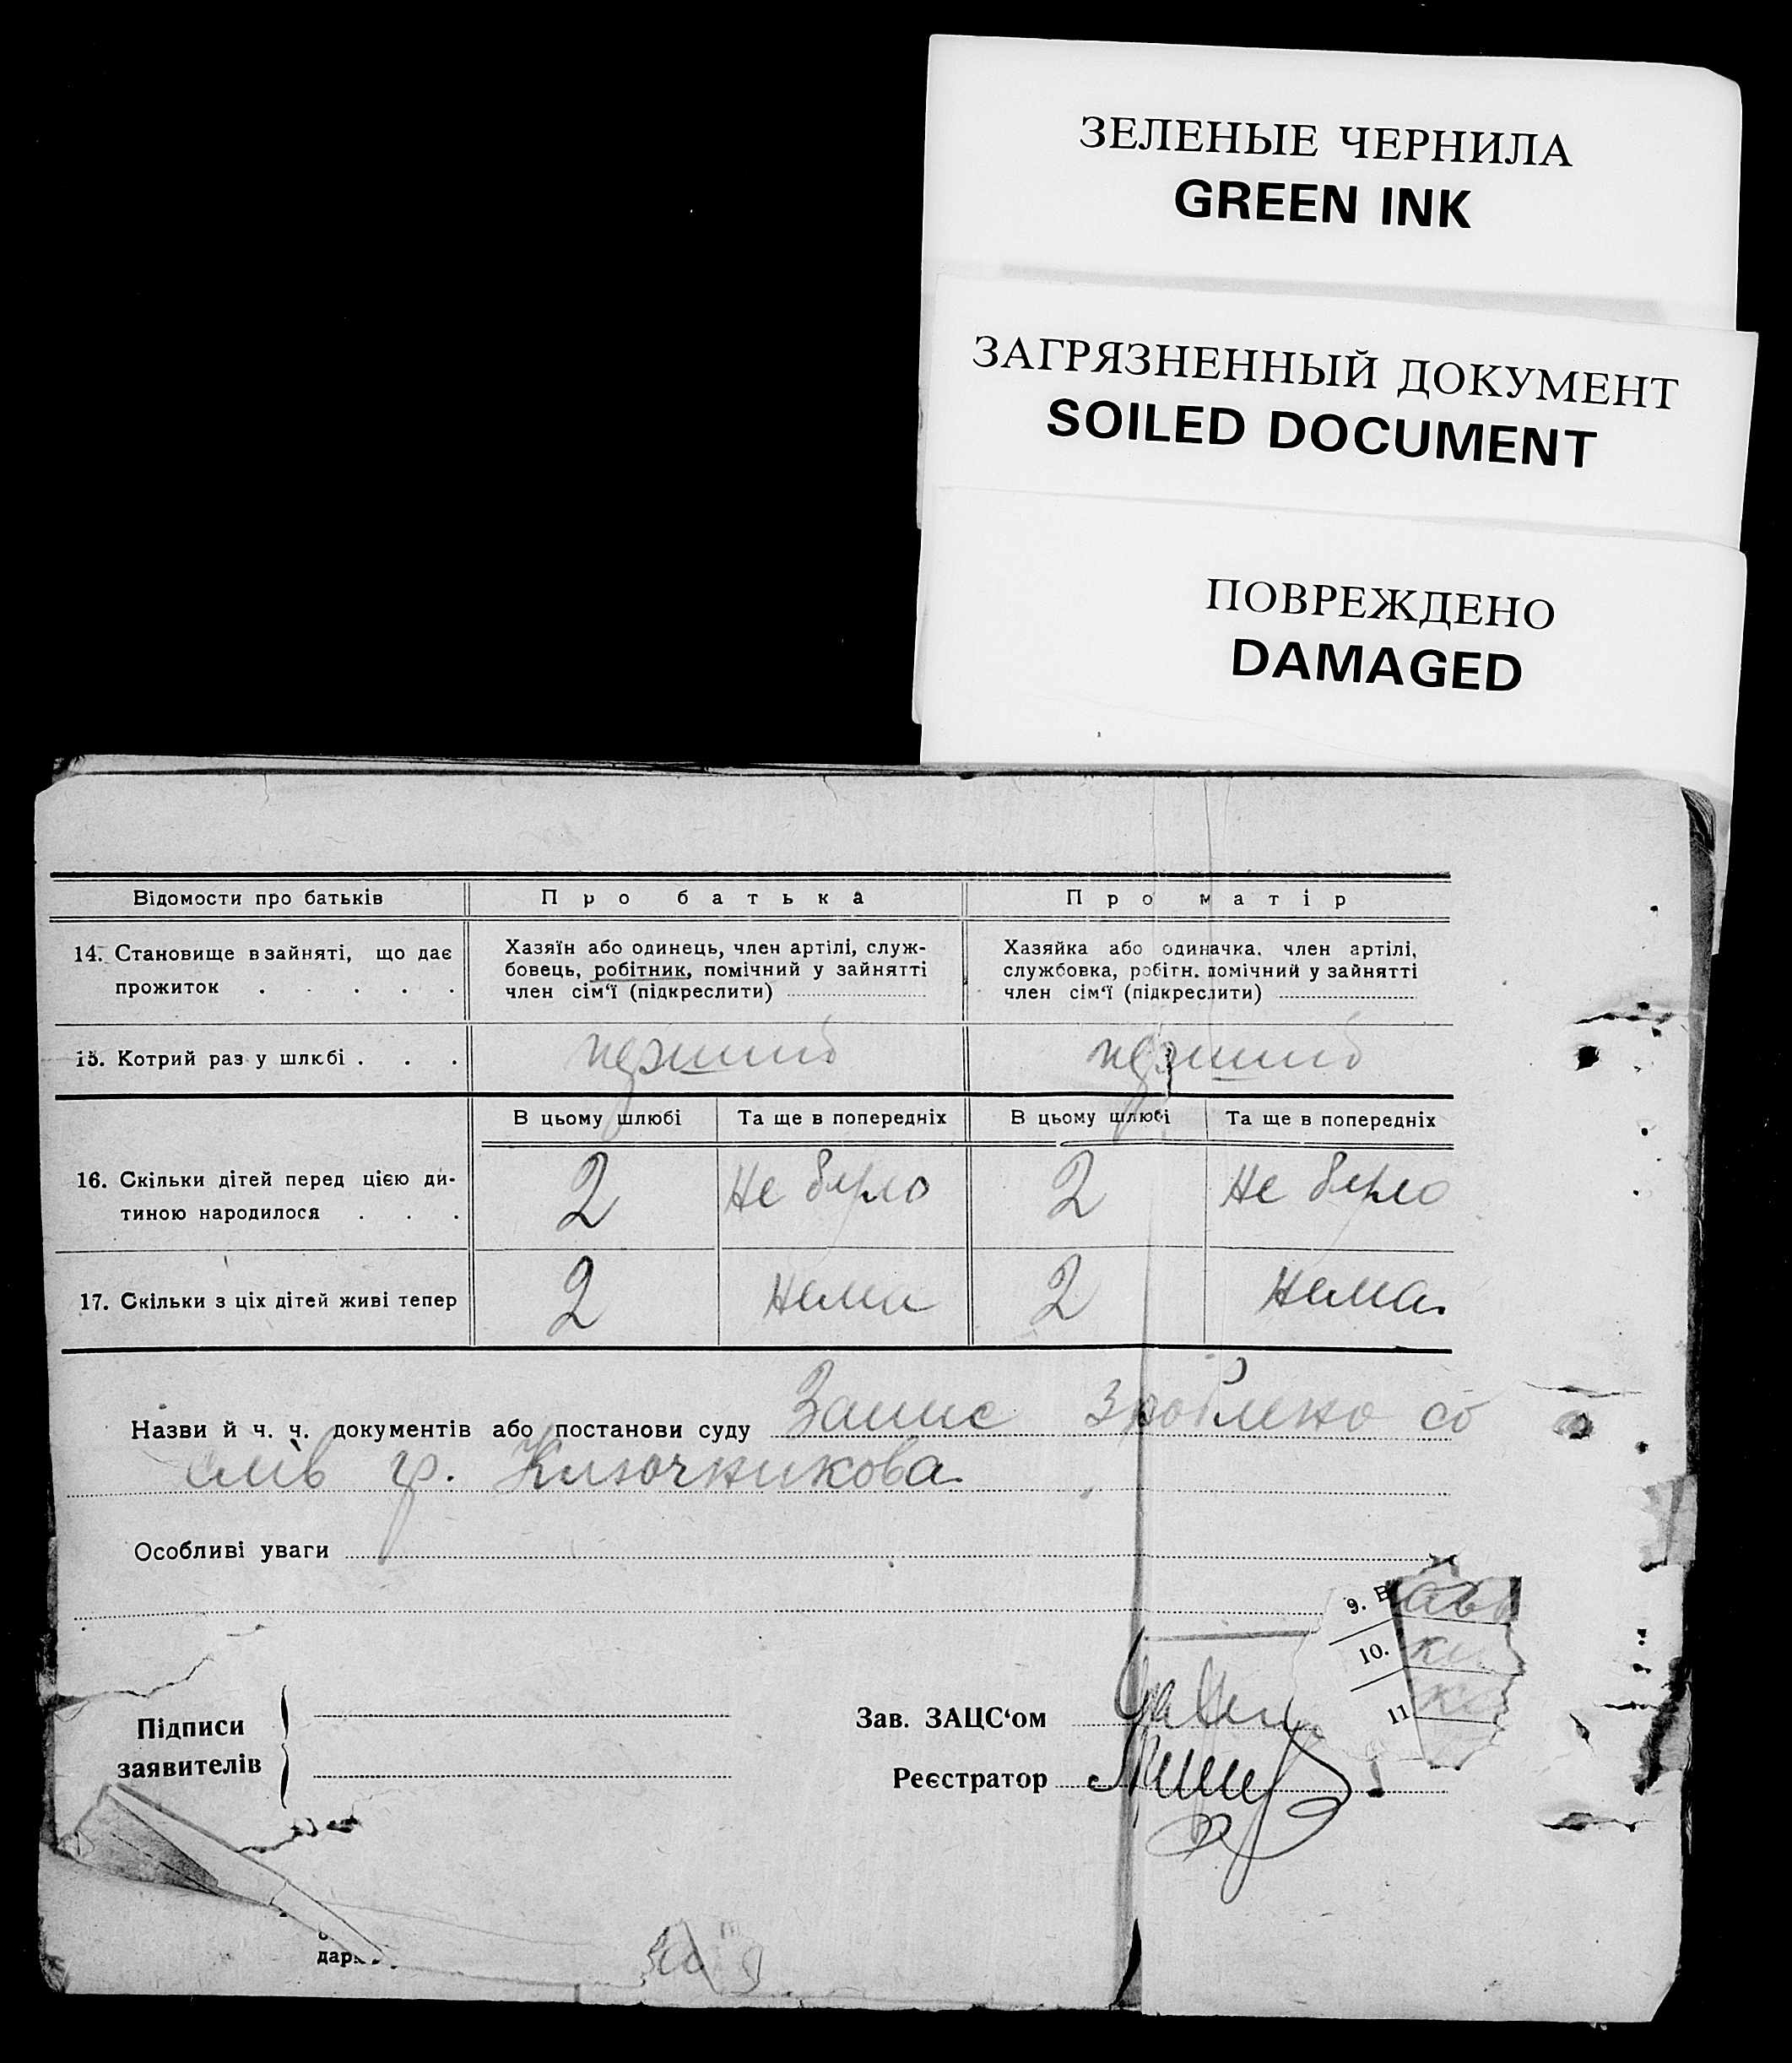 ЗЕЛЕНЫЕ ЧЕРНИЛА
GREEN INK
ЗАГРЯЗНЕННЫЙ ДОКУМЕНТ
SOILED DOCUMENT
ПОВРЕЖДЕНО
DAMAGED
Відомости про батьків
Про батька
Про матір
14. Становище в зайняті, що дає
прожиток . . . . .
Хазяїн або одинець, член артілі, служ-
бовець, робітник, помічний у зайнятті
член сім'ї (підкреслити)
Хазяйка або одиначка, член артілі,
службовка, робітн. помічний у зайнятті
член сім'ї (підкреслити)
15. Котрий раз у шлюбі . . .
перший
перший
В цьому шлюбі
Та ще в попередніх
В цьому шлюбі
Та ще в попередніх
16. Скільки дітей перед цією ди-
тиною народилося . . .
2
Не було
2
Не було
17. Скільки з ціх дітей живі тепер
2
Нема
2
Нема.
Назви й ч. ч. документів або постанови суду Запис зроблено со
слів гр. Ключникова.
Особливі уваги
9.
10.
11
Підписи
заявителів
Зав. ЗАЦС'ом
Реєстратор